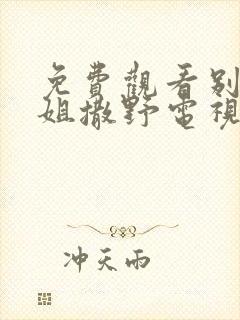 免費觀看别
姐撒野電視
冲天雨